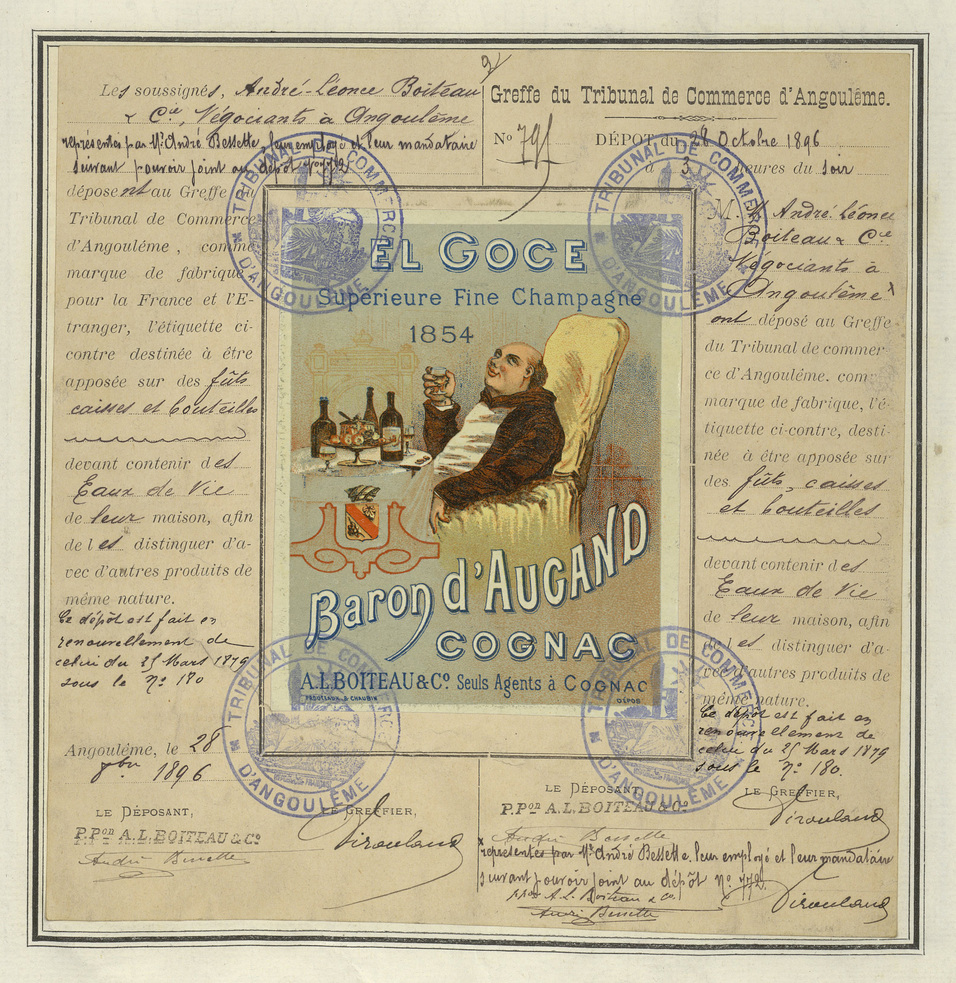 Les soussignés, André-Léonce Boiteau
& Cie, Négociants à Angoulême
représentés par Mr André Bessette, leur employé et leur mandataire
suivant pouvoir joint au dépôt no 772
déposent au Greffe du
Tribunal de Commerce
d'Angoulême, comme
marque de fabrique,
pour la France et l'E-
tranger, l'étiquette ci-
contre destinée à être
apposée sur des fûts
caisses et bouteilles
devant contenir des
Eaux de Vie
de leur maison, afin
de les distinguer d'a-
vec d'autres produits de
même nature.
Ce dépôt est fait en
renouvellement de
celui du 25 Mars 1879
sous le No 180
Angoulême, le 28
8bre 1896
LE DÉPOSANT,
P.Pon A.L.BOITEAU & Co
André Bessette
LE GREFFIER,
EL GOCE
Supérieure Fine Champagne
1854
Baron d'AUGAND
COGNAC
A.L.BOITEAU & Co. Seuls Agents à COGNAC
PROUTEAUX & CHAUBIN
DÉPOSÉ
TRIBUNAL DE COMMERCE
D'ANGOULÊME
TRIBUNAL DE COMMERCE
D'ANGOULÊME
TRIBUNAL DE COMMERCE
D'ANGOULÊME
TRIBUNAL DE COMMERCE
D'ANGOULÊME
Greffe du Tribunal de Commerce d'Angoulême.
No 791
DÉPOT du 28 Octobre 1896
à 3 heures du soir
M. M. André Léonce
Boiteau & Cie
Négociants à
Angoulême x
ont déposé au Greffe
du Tribunal de commer-
ce d'Angoulême. comme
marque de fabrique, l'é-
tiquette ci-contre, desti-
née à être apposée sur
des fûts, caisses
et bouteilles
devant contenir des
Eaux de Vie
de leur maison, afin
de les distinguer d'a-
vec d'autres produits de
même nature.
Ce dépôt est fait en
renouvellement de
celui du 25 Mars 1879
sous le No 180.
LE DÉPOSANT,
P.Pon A.L.BOITEAU & Co
André Bessette
LE GREFFIER,
x représentés par Mr André Bessette, leur employé et leur mandataire
suivant pouvoir joint au dépôt No 772.
ppon A. L. Boiteau & Co.
André Bessette